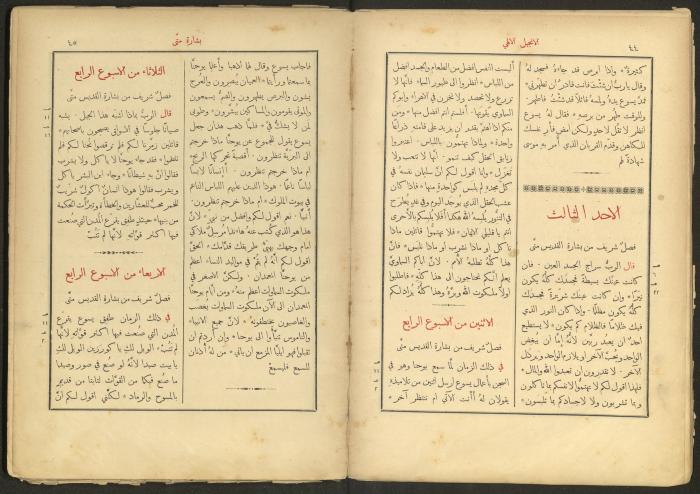 ٤٤
الانجيل الالهي
كثيرة* واذا ابرص قد جاءَ فسجد له
وقال يا ربُّ ان شئت فانت قادرٌ ان تطهرني*
فمدَّ يسوع يدهُ ولمسهُ قائلًا قد شئتُ فاطهر.
وللوقت طهر من برصهِ* فقال لهُ يسوع
انظر لا تقل لاحدٍ ولكن امضِ فأرِ نفسك
للكاهن وقدم القربان الذي أمر بهِ موسى
شهادةً لهم
الاحد الثالث
فصلٌ شريف من بشارة القديس متى
قال الربُّ سراج الجسد العين. فان
كانت عينك بسيطة فجسدك كلُّهُ يكون
نيّرًا* وان كانت عينك شريرة فجسدك
كلُّهُ يكون مظلمًا. واذا كان النور الذي
فيك ظلامًا فالظلام كم يكون* لا يستطيع
احدٌ ان يعبد ربَّين لانَّهُ إمَّا ان يبغض
الواحد ويحبَّ الآخر او يلازم الواحد ويرذل
الآخر. لا تقدرون ان تعبدوا الله والمال*
فلهذا اقول لكم لا تهتموا لانفسكم بما تأكلون
وبما تشربون ولا لاجسادكم بما تلبسون*
أليست النفس افضل من الطعام والجسد افضل
من اللباس* انظروا الى طيور السماء فانَّها لا
تزرع ولا تحصد ولا تخزن في الأهراء وابوكم
السماوي يقوتها. أفلستم انتم افضل منها* ومن
منكم اذا اهتمَّ يقدر ان يزيد على قامته ذراعًا
واحدة* ولماذا تهتمون باللباس. اعتبروا
زنابق الحقل كيف تنمو. انَّها لا تتعب ولا
تغزل* وانا اقول لكم انَّ سليمان نفسه في
كل مجده لم يلبس كواحدةٍ منها* فاذا كان
عشب الحقل الذي يوجد اليوم وفي غدٍ يُطرح
في التنور يلبسه الله هكذا أفلا يلبسكم بالأحرى
انتم يا قليلي الايمان* فلا تهتموا قائلين ماذا
نأكل او ماذا نشرب او ماذا نلبس* فانَّ
هذا كلَّهُ تطلبه الأمم. لأنَّ اباكم السماوي
يعلم انَّكم تحتاجون الى هذا كلِّهِ* فاطلبوا
اولًا ملكوت الله وبرَّهُ وهذا كلُّهُ يزاد لكم
الاثنين من الاسبوع الرابع
فصلٌ شريف من بشارة القديس متى
في ذلك الزمان لمَّا سمع يوحنا وهو في
السجن بأعمال يسوع أرسل اثنين من تلاميذه
يقولان لهُ أأنت الآتي ام ننتظر آخر*
بشارة متى
٤٥
فاجاب يسوع وقال لهما اذهبا وأعلما يوحنا
بما سمعتما ورأيتما* العميان يبصرون والعرج
يمشون والبرص يطهرون والصم يسمعون
والموتى يقومون والمساكين يبشَّرون* وطوبى
لمن لا يشكُّ فيَّ* فلمَّا ذهب هذان جعل
يسوع يقول للجموع عن يوحنا ماذا خرجتم
الى البريّة تنظرون. أقصبةً تحركها الريح*
ام ماذا خرجتم تنظرون. أإنسانًا لابسًا
لباسًا ناعمًا. هوذا الذين عليهم اللباس الناعم
في بيوت الملوك* ام ماذا خرجتم تنظرون.
أنبيًّا. نعم اقول لكم وافضل من نبيّ* لانَّ
هذا هو الذي كُتب عنه هاءنذا مرسلٌ ملاكي
امام وجهك يهيئ طريقك قدَّامك* الحقَّ
اقول لكم انَّه لم يقم في مواليد النساء اعظم
من يوحنا المعمدان. ولكنَّ الاصغر في
ملكوت السماوات اعظم منه* ومن ايام يوحنا
المعمدان الى الآن ملكوت السماوات يُغصب
والغاصبون يختطفونه* لانَّ جميع الانبياء
والناموس تنبَّأوا الى يوحنا* وإن أردتم ان
تقبلوا فهو ايليا المزمع ان يأتي* من له أذنان
للسمع فليسمع
الثلاثاء من الاسبوع الرابع
فصلٌ شريف من بشارة القديس متى
قال الربُّ بماذا اشبّه هذا الجيل. يشبه
صبيانًا جلوسًا في الأسواق يصيحون باصحابهم*
قائلين زمَّرنا لكم فلم ترقصوا نحنا لكم فلم
تلطموا* فقد جاء يوحنا لا يأكل ولا يشرب
فقالوا انَّ به شيطانًا* وجاء ابن البشر يأكل
ويشرب فقالوا هوذا انسانٌ اكولٌ شرِّيب
للخمر محبٌّ للعشارين والخطأة وتبرَّأت الحكمة
من بنيها* حينئذٍ طفق يقرع المدن التي صُنعت
فيها اكثر قوَّاته لانَّها لم تتُبْ
الاربعاء من الاسبوع الرابع
فصلٌ شريف من بشارة القديس متى
في ذلك الزمان طفق يسوع يقرع
المدن التي صُنعت فيها اكثر قوَّاته لانَّها
لم تتُبْ* الويل لكِ يا كورزين الويل لكِ
يا بيت صيدا لانَّهُ لو صُنع في صور وصيدا
ما صُنع فيكما من القوَّات لتابتا من قديم
بالمسوح والرماد* لكنِّي اقول لكم انَّ